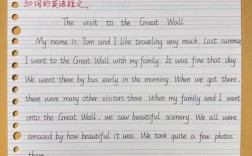 80词的英语短文。
The visit to the Great Wall.
My name is Tom and I like traveling very much. Last summer
I went to the Great Wall with my family. It was fine that day.
We went there by bus early in the morning. When we got there,
there were many other visitors there. When my family and I went
onto the Great Wall, we saw beautiful scenery. We all were
amazed by how beautiful it was. We took quite a few photos
there.